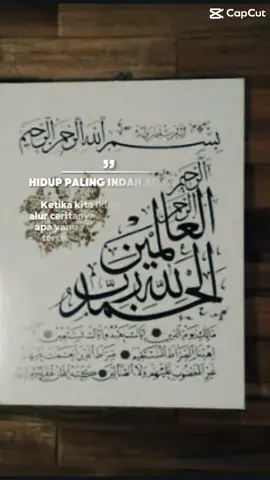 CapCut
بسم الله الرحمن الرحيم
”
HIDUP PALING INDAH
Ketika kita
alur ceritanya
apa yang
الرحمن
الرحيم
العالمين
لله رب
الحمد
مالك يوم الدين إياك نعبد وإياك نستعين
اهدنا الصراط المستقيم صراط الذين أنعمت عليهم
غير المغضوب عليهم ولا الضالين